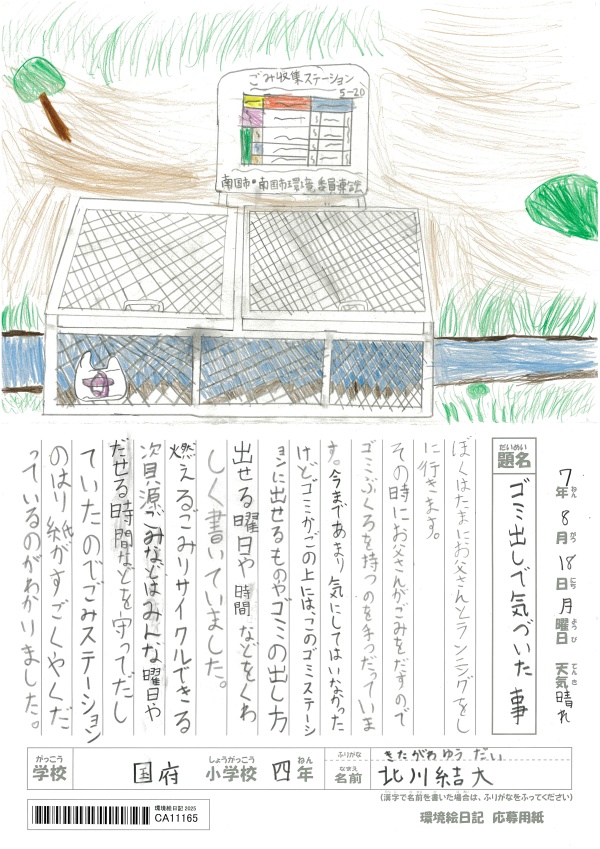 ごみ収集ステーション
5-20
南国市・南国市環境委員連合会
7年8月18日月曜日 天気晴れ
ねん がつ にち ようび てんき
だいめい
題名 ゴミ出しで気づいた事
ぼくはたまにお父さんとランニングをし
に行きます。
その時にお父さんがごみをだすので
ゴミぶくろを持つのを手つだっていま
す。今まであまり気にしてはいなかった
けどゴミかごの上には、このゴミステーシ
ョンに出せるものやゴミの出し方
出せる曜日や時間などをくわ
しく書いていました。
燃えるごみリサイクルできる
資源ごみなどはみんな曜日や
だせる時間などを守ってだし
ていたのでごみステーション
のはり紙がすごくやくだ
っているのがわかりました。
がっこう しょうがっこう ねん
学校 国府 小学校 四年
ふりがな きたがわゆうだい
なまえ
名前 北川結大
(漢字で名前を書いた場合は、ふりがなをふってください)
環境絵日記 2025
CA11165
環境絵日記 応募用紙